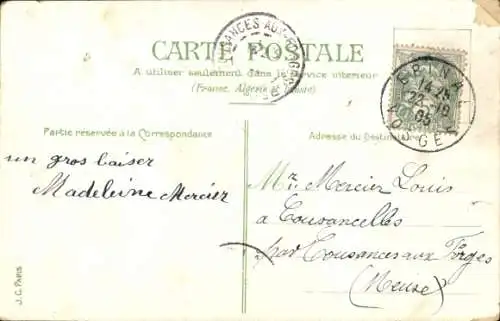 COUSANCES AUX-FORGES
CARTE POSTALE
A utiliser seulement dans le service intérieur
(France, Algérie et Tunisie)
EPINAL
14 25
VOSGES
Partie réservée à la Correspondance
Adresse du Destinataire
un gros baiser
Madeleine Mercier
Mr. Mercier Louis
à Cousancelles
par Cousances aux Forges
(Meuse)
J. C. PARIS